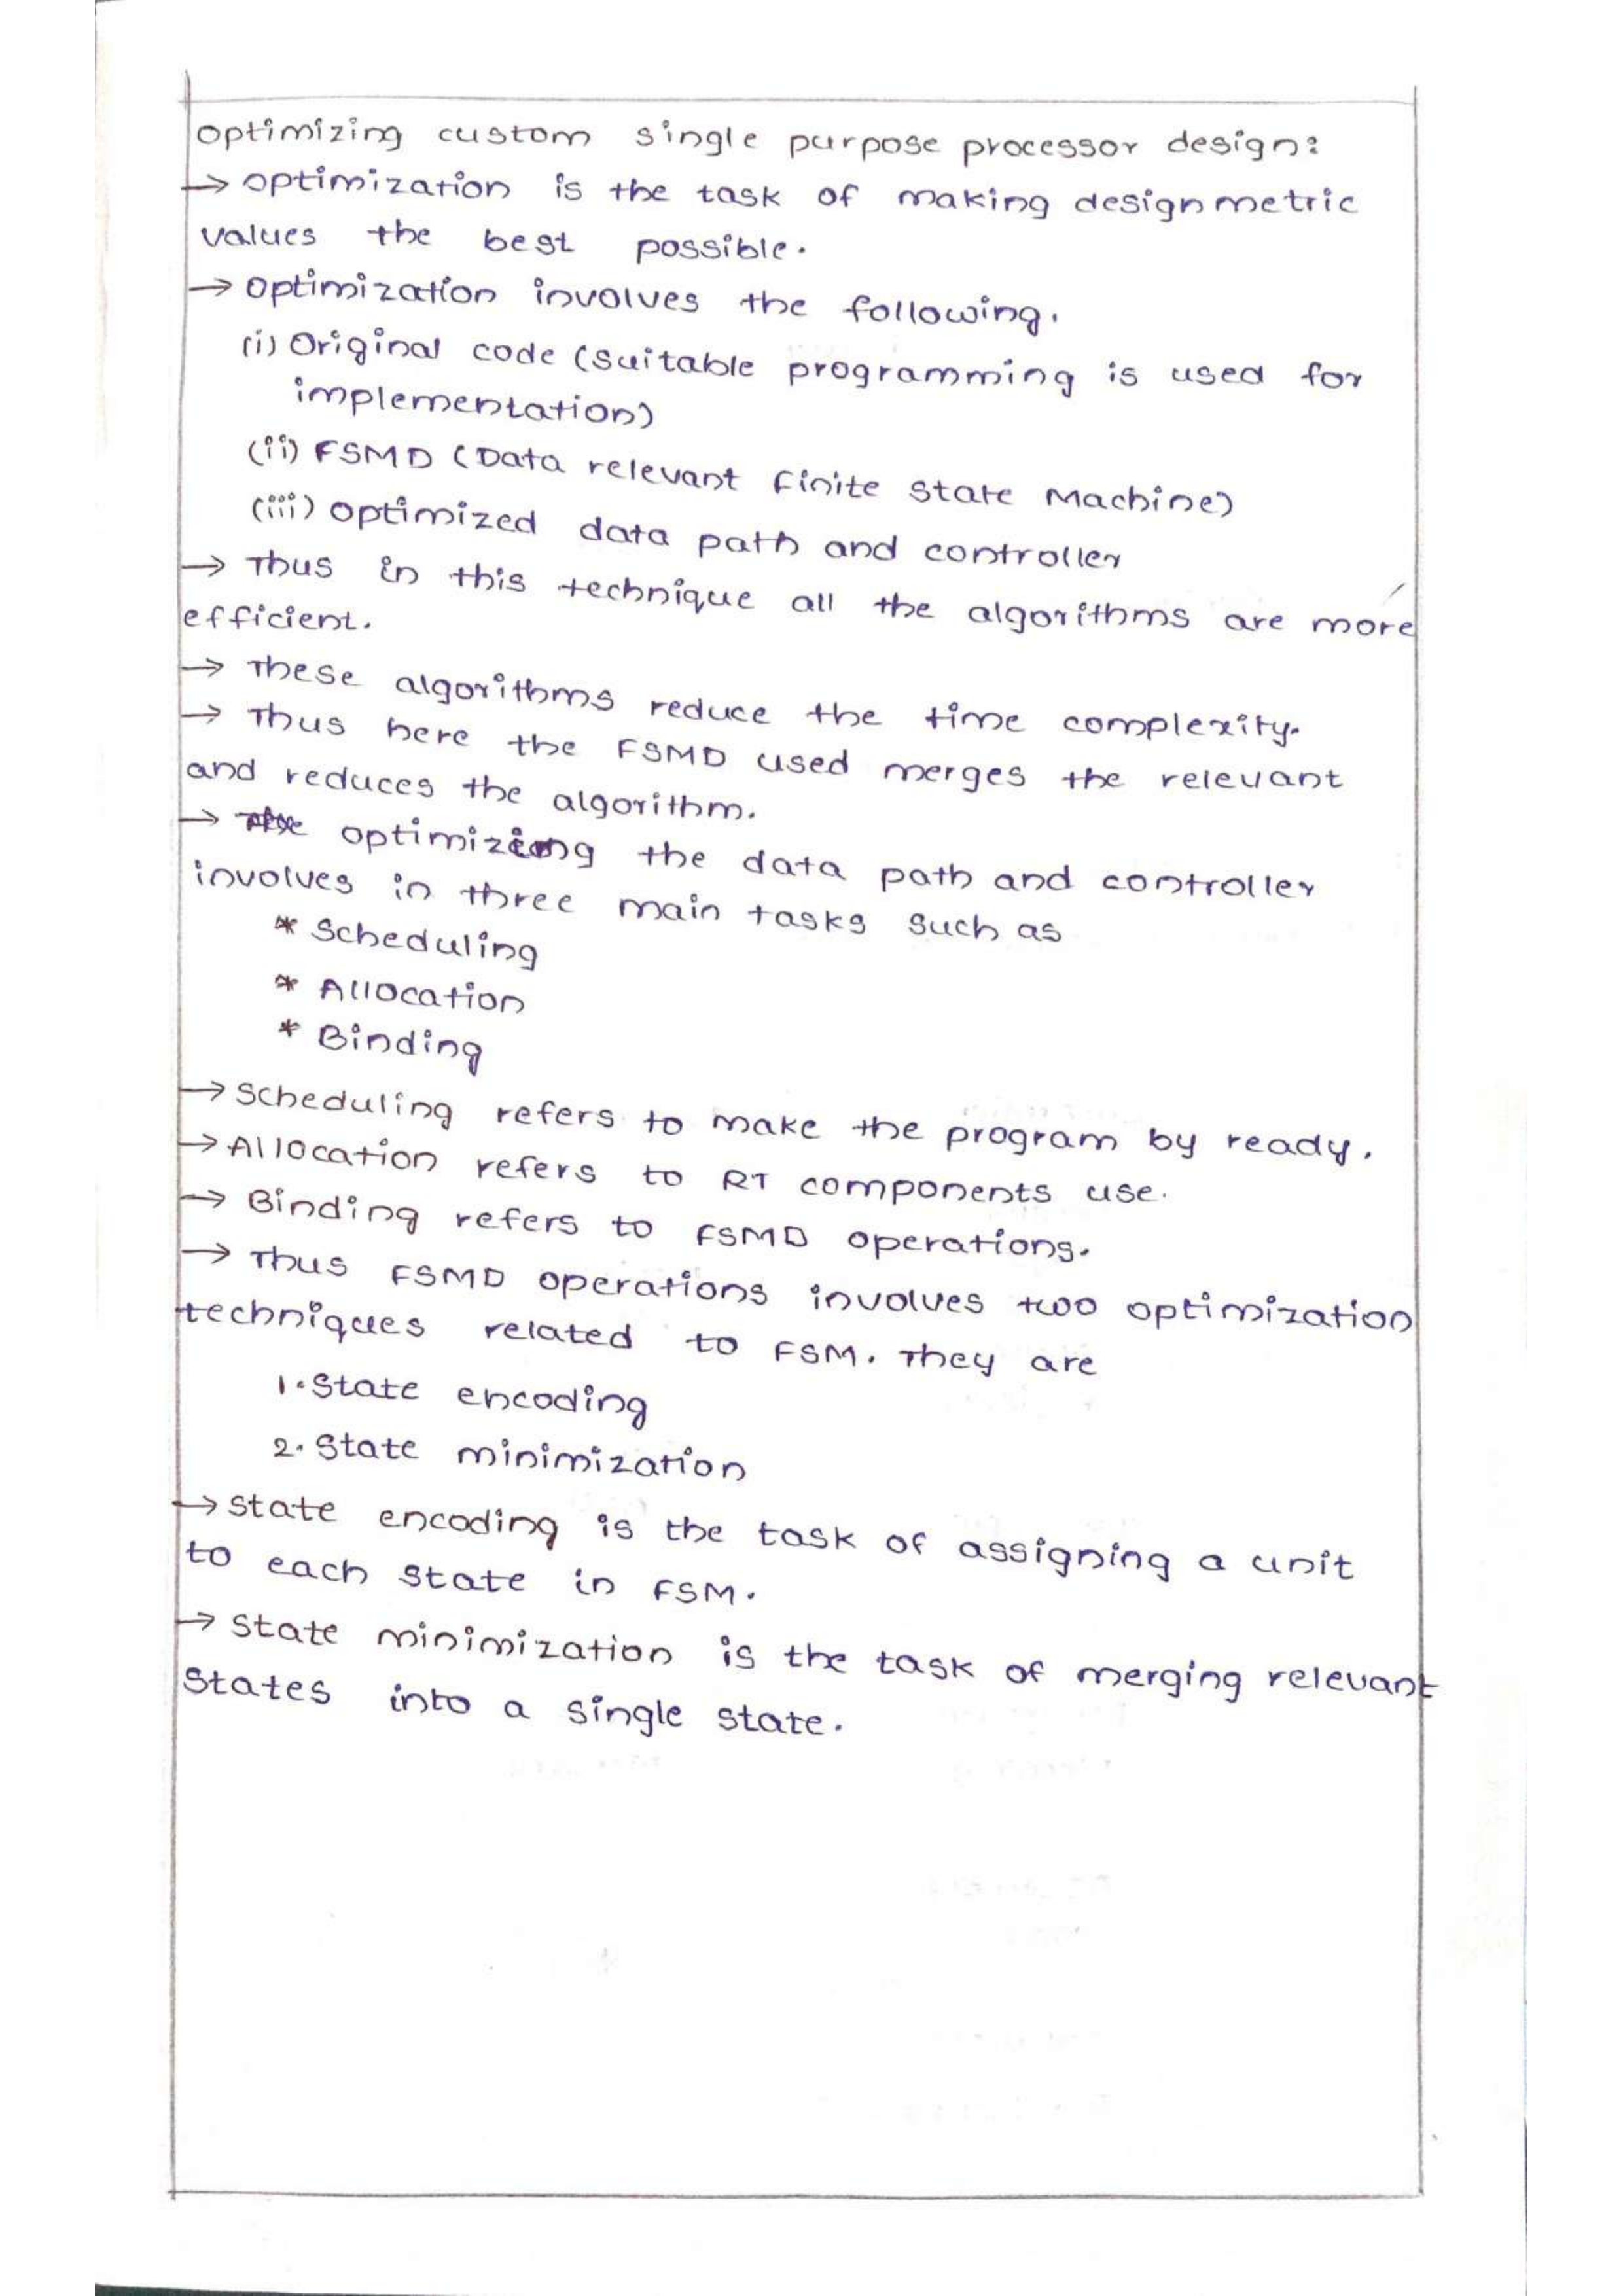 optimizing custom single purpose processor design:
→ optimization is the task of making design metric
values the best possible.
→ optimization involves the following.
(i) Original code (suitable programming is used for
implementation)
(ii) FSMD (Data relevant Finite State Machine)
(iii) optimized data path and controller
→ Thus in this technique all the algorithms are more
efficient.
→ These algorithms reduce the time complexity.
→ Thus here the FSMD used merges the relevant
and reduces the algorithm.
→ optimizing the data path and controller
involves in three main tasks such as
* Scheduling
* Allocation
* Binding
→ Scheduling refers to make the program by ready.
→ Allocation refers to RT components use.
→ Binding refers to FSMD operations.
→ Thus FSMD operations involves two optimization
techniques related to FSM. They are
1. State encoding
2. State minimization
→ State encoding is the task of assigning a unit
to each state in FSM.
→ State minimization is the task of merging relevant
States into a single state.